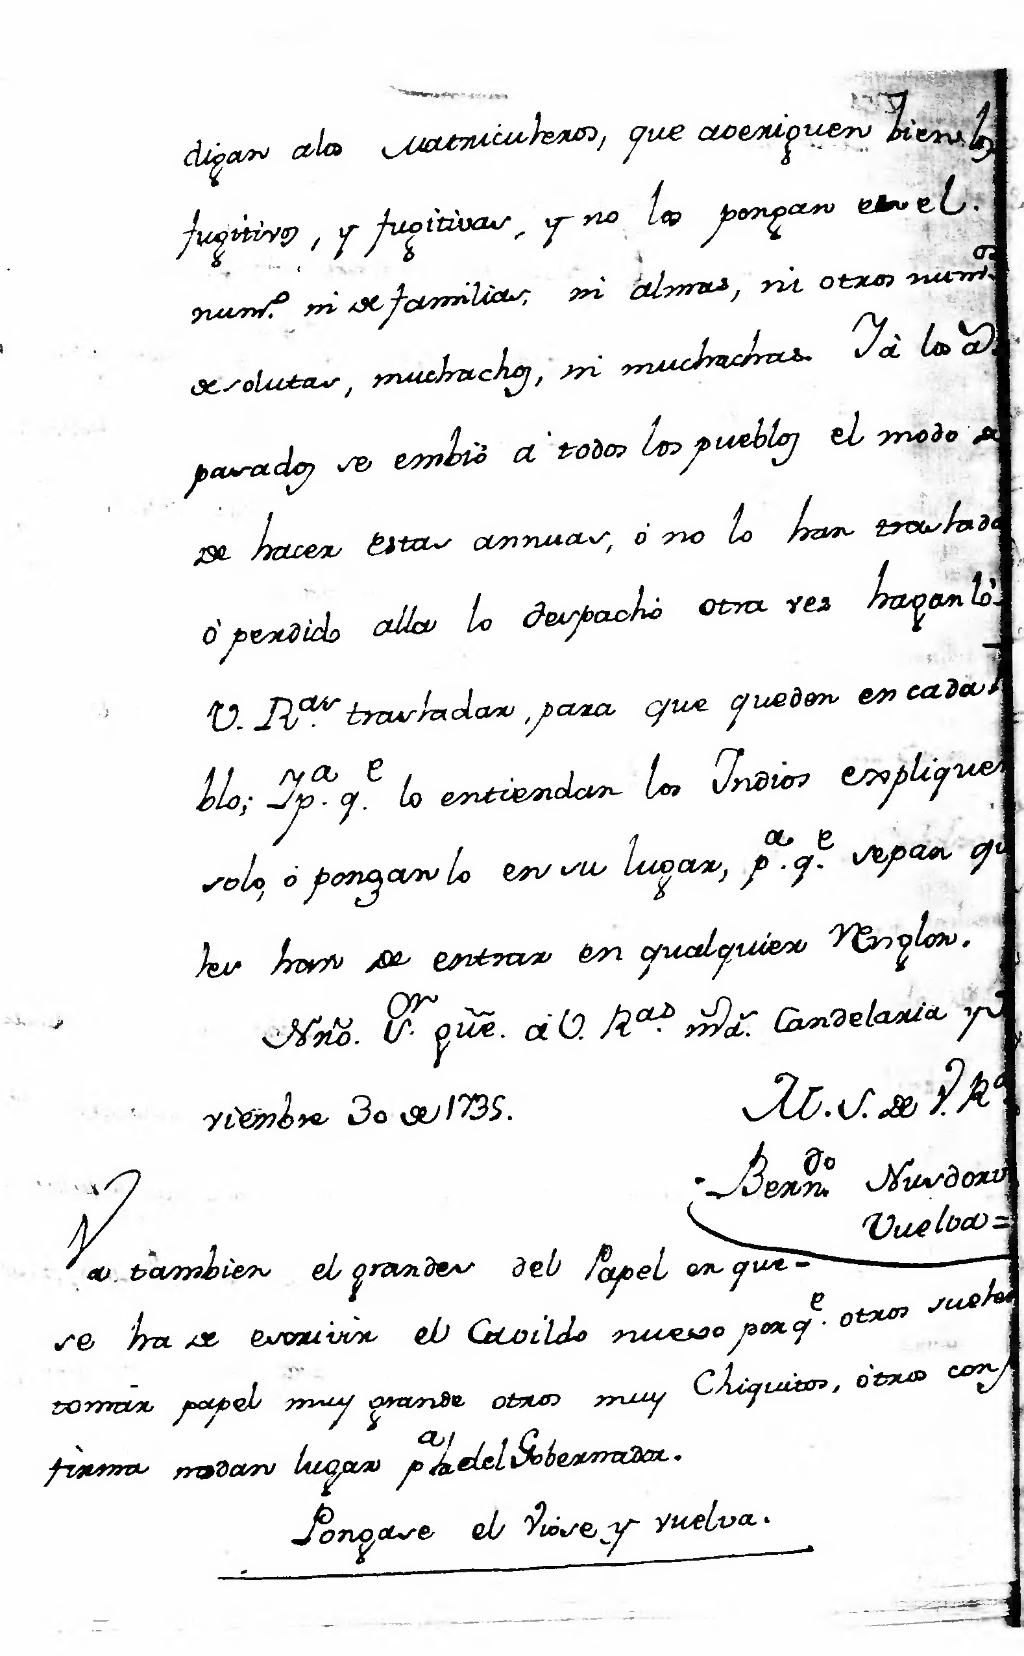 digan alos Matriculeros, que averiguen bien los
fugitivos, y fugitivas, y no los pongan en el.
num.º ni de familias, ni almas, ni otros num.os
desolutas, muchachos, ni muchachas. Ya los a.
pasados se embiò a todos los pueblos el modo de
de hacer estas annuas, ó no lo han traslada
ò perdido alla lo despachó otra vez haganlò
V. R.as trasladar, para que queden en cada
blo; Yp.a q.e lo entiendan los Indios explique
solo, ò ponganlo en su lugar, p.a q.e sepan qu
les han de entrar en qualquier Renglon.
Nrõ. S.or gũe. à V. R.as m̃s a.s Candelaria y
viembre 30 de 1735.
M. S. de V. R.a
Bern.do Nusdorf
Vuelva=
Va tambien el grandes del Papel en que=
se ha de escrivir el Cavildo nuevo porq.e otros suelen
tomar papel muy grande otros muy Chiquitos, òtros con
firma no dan lugar p.a la del Gobernador.
Pongase el Viose, y vuelva.